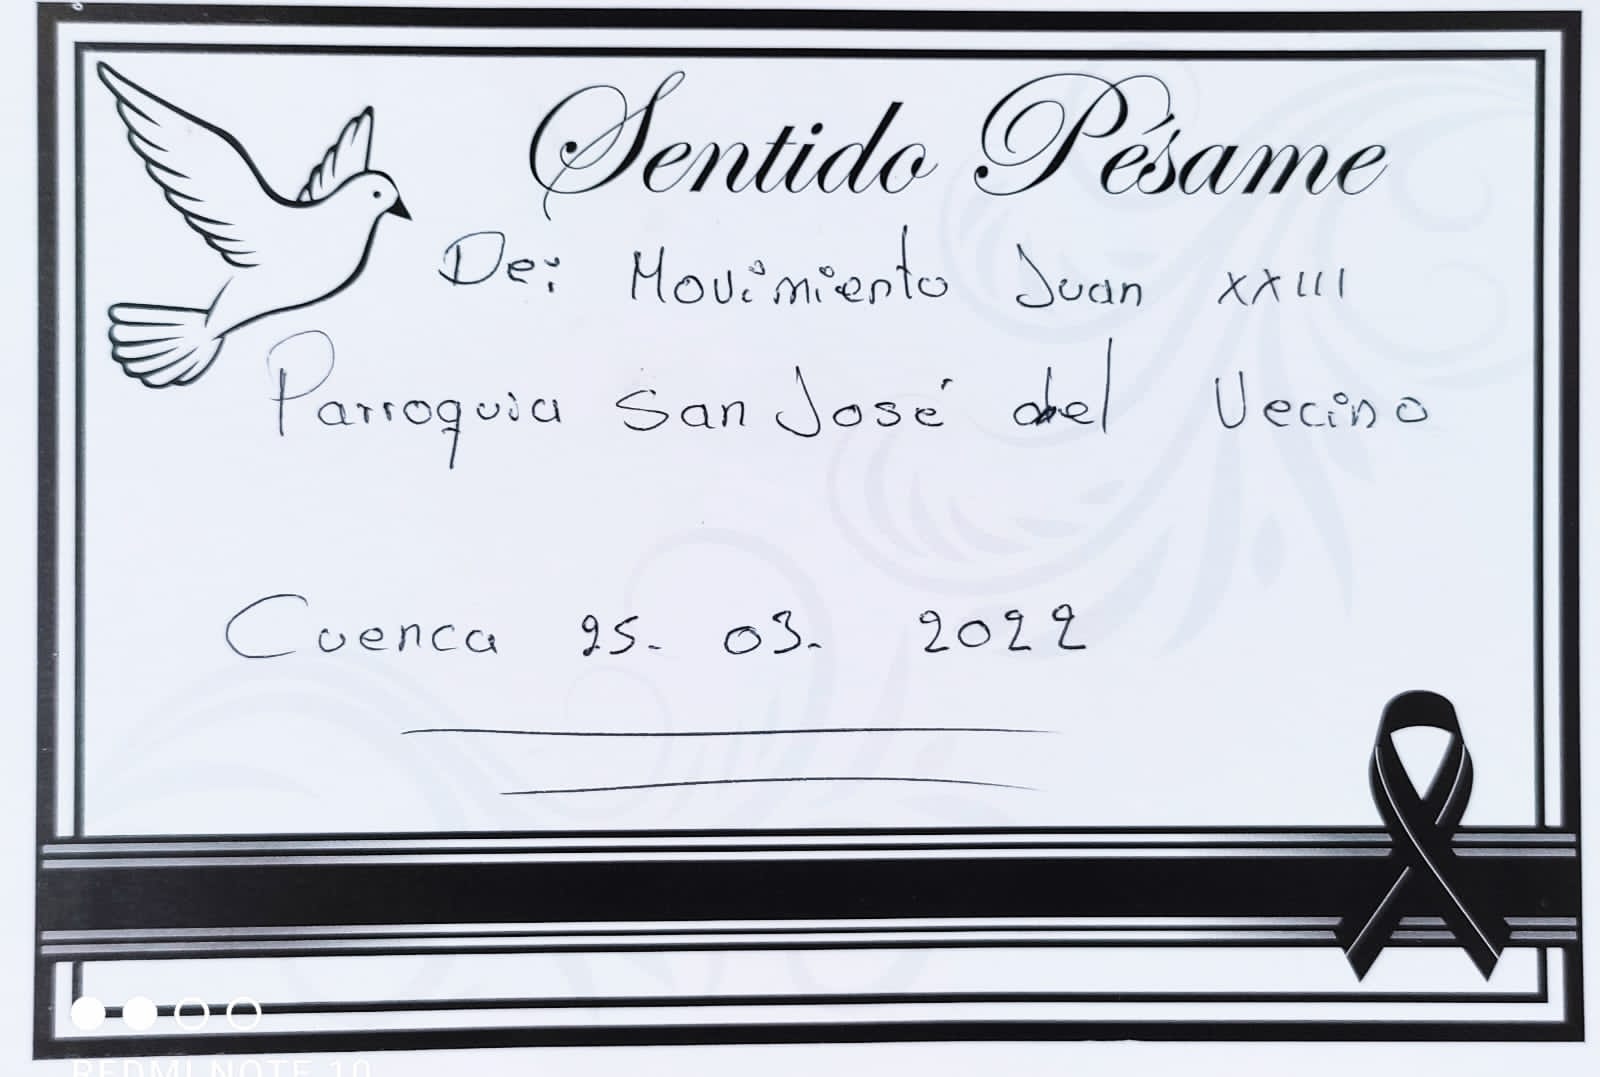 Sentido Pésame
De: Movimiento Juan XXIII
Parroquia San José del Vecino
Cuenca 25. 03. 2022
REDMI NOTE 10